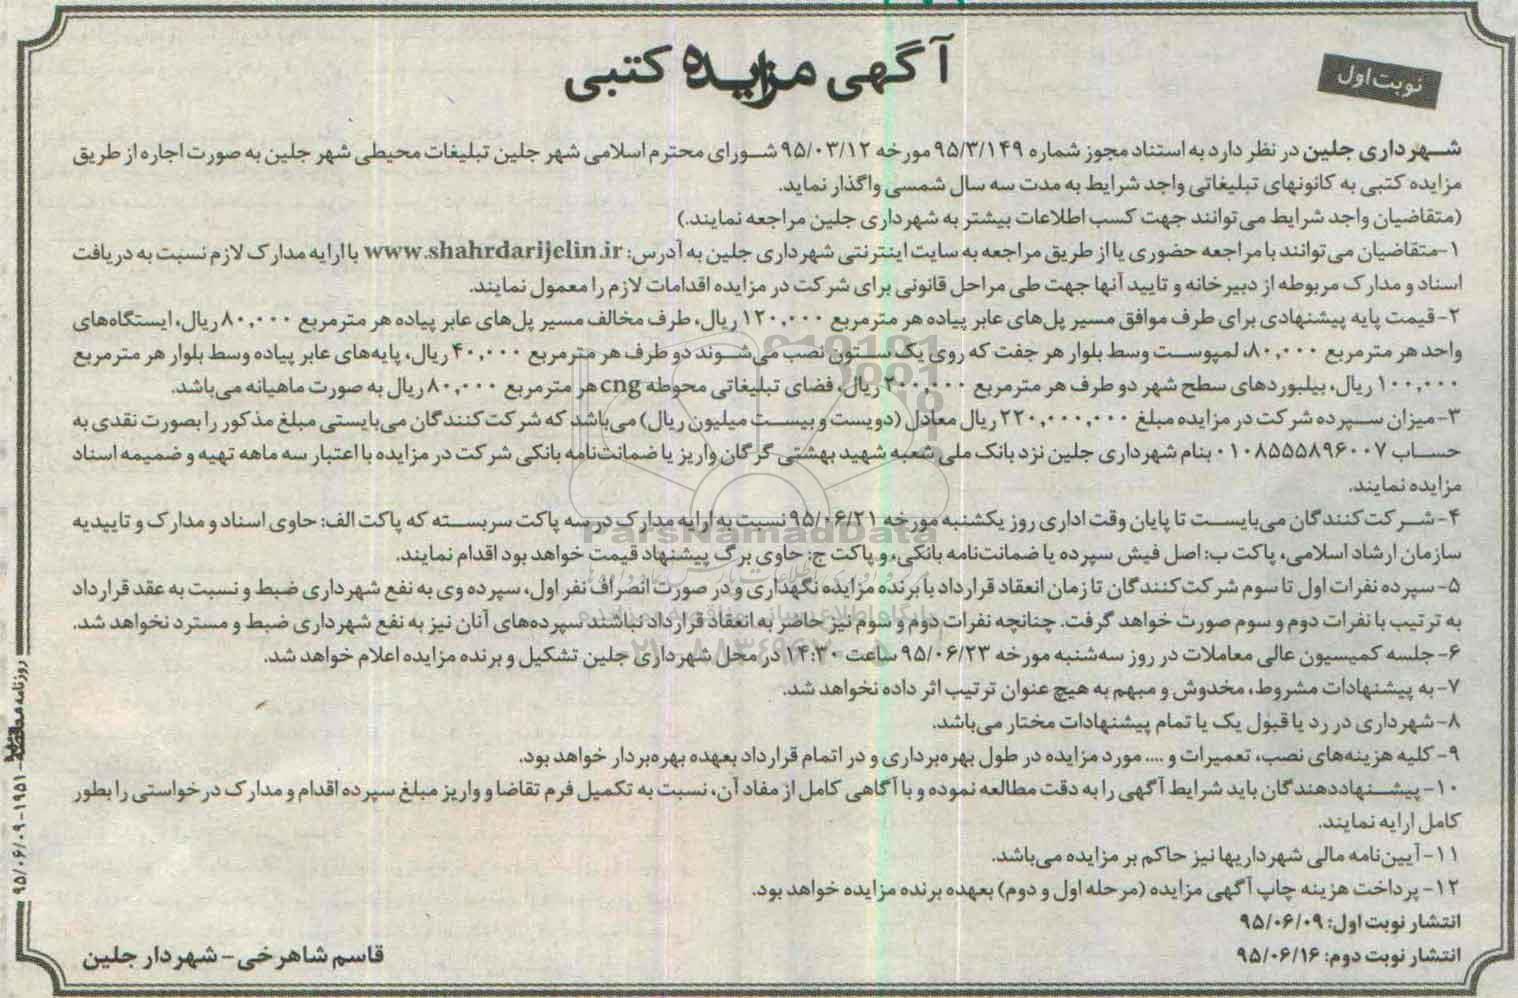 نوبت اول
آگهی مزایده کتبی
شهرداری جلین در نظر دارد به استناد مجوز شماره ۹۵/۳/۱۴۹ مورخه ۹۵/۰۳/۱۲ شورای محترم اسلامی شهر جلین تبلیغات محیطی شهر جلین به صورت اجاره از طریق
مزایده کتبی به کانونهای تبلیغاتی واجد شرایط به مدت سه سال شمسی واگذار نماید.
(متقاضیان واجد شرایط می‌توانند جهت کسب اطلاعات بیشتر به شهرداری جلین مراجعه نمایند.)
۱-متقاضیان می‌توانند با مراجعه حضوری یا از طریق مراجعه به سایت اینترنتی شهرداری جلین به آدرس: www.shahrdarijelin.ir با ارایه مدارک لازم نسبت به دریافت
اسناد و مدارک مربوطه از دبیرخانه و تایید آنها جهت طی مراحل قانونی برای شرکت در مزایده اقدامات لازم را معمول نمایند.
۲- قیمت پایه پیشنهادی برای طرف موافق مسیر پل‌های عابر پیاده هر مترمربع ۱۲۰,۰۰۰ ریال، طرف مخالف مسیر پل‌های عابر پیاده هر مترمربع ۸۰,۰۰۰ ریال، ایستگاه‌های
واحد هر مترمربع ۸۰,۰۰۰، لمپوست وسط بلوار هر جفت که روی یک ستون نصب می‌شوند دو طرف هر مترمربع ۴۰,۰۰۰ ریال، پایه‌های عابر پیاده وسط بلوار هر مترمربع
۱۰۰,۰۰۰ ریال، بیلبوردهای سطح شهر دو طرف هر مترمربع ۲۰۰,۰۰۰ ریال، فضای تبلیغاتی محوطه cng هر مترمربع ۸۰,۰۰۰ ریال به صورت ماهیانه می‌باشد.
۳- میزان سپرده شرکت در مزایده مبلغ ۲۲۰,۰۰۰,۰۰۰ ریال معادل (دویست و بیست میلیون ریال) می‌باشد که شرکت‌کنندگان می‌بایستی مبلغ مذکور را بصورت نقدی به
حساب ۰۱۰۸۵۵۵۸۹۶۰۰۷ بنام شهرداری جلین نزد بانک ملی شعبه شهید بهشتی گرگان واریز یا ضمانت‌نامه بانکی شرکت در مزایده با اعتبار سه ماهه تهیه و ضمیمه اسناد
مزایده نمایند.
۴- شرکت‌کنندگان می‌بایست تا پایان وقت اداری روز یکشنبه مورخه ۹۵/۰۶/۲۱ نسبت به ارایه مدارک در سه پاکت سربسته که پاکت الف: حاوی اسناد و مدارک و تاییدیه
سازمان ارشاد اسلامی، پاکت ب: اصل فیش سپرده یا ضمانت‌نامه بانکی، و پاکت ج: حاوی برگ پیشنهاد قیمت خواهد بود اقدام نمایند.
۵- سپرده نفرات اول تا سوم شرکت‌کنندگان تا زمان انعقاد قرارداد با برنده مزایده نگهداری و در صورت انصراف نفر اول، سپرده وی به نفع شهرداری ضبط و نسبت به عقد قرارداد
به ترتیب با نفرات دوم و سوم صورت خواهد گرفت. چنانچه نفرات دوم و سوم نیز حاضر به انعقاد قرارداد نباشند سپرده‌های آنان نیز به نفع شهرداری ضبط و مسترد نخواهد شد.
۶- جلسه کمیسیون عالی معاملات در روز سه‌شنبه مورخه ۹۵/۰۶/۲۳ ساعت ۱۴:۳۰ در محل شهرداری جلین تشکیل و برنده مزایده اعلام خواهد شد.
۷- به پیشنهادات مشروط، مخدوش و مبهم به هیچ عنوان ترتیب اثر داده نخواهد شد.
۸- شهرداری در رد یا قبول یک یا تمام پیشنهادات مختار می‌باشد.
۹- کلیه هزینه‌های نصب، تعمیرات و .... مورد مزایده در طول بهره‌برداری و در اتمام قرارداد بعهده بهره‌بردار خواهد بود.
۱۰- پیشنهاددهندگان باید شرایط آگهی را به دقت مطالعه نموده و با آگاهی کامل از مفاد آن، نسبت به تکمیل فرم تقاضا و واریز مبلغ سپرده اقدام و مدارک درخواستی را بطور
کامل ارایه نمایند.
۱۱- آیین‌نامه مالی شهرداریها نیز حاکم بر مزایده می‌باشد.
۱۲- پرداخت هزینه چاپ آگهی مزایده (مرحله اول و دوم) بعهده برنده مزایده خواهد بود.
انتشار نوبت اول: ۹۵/۰۶/۰۹
انتشار نوبت دوم: ۹۵/۰۶/۱۶
قاسم شاهرخی - شهردار جلین
روزنامه - ۱۹۵۱ - ۹۵/۰۶/۰۹
ParsNamadData